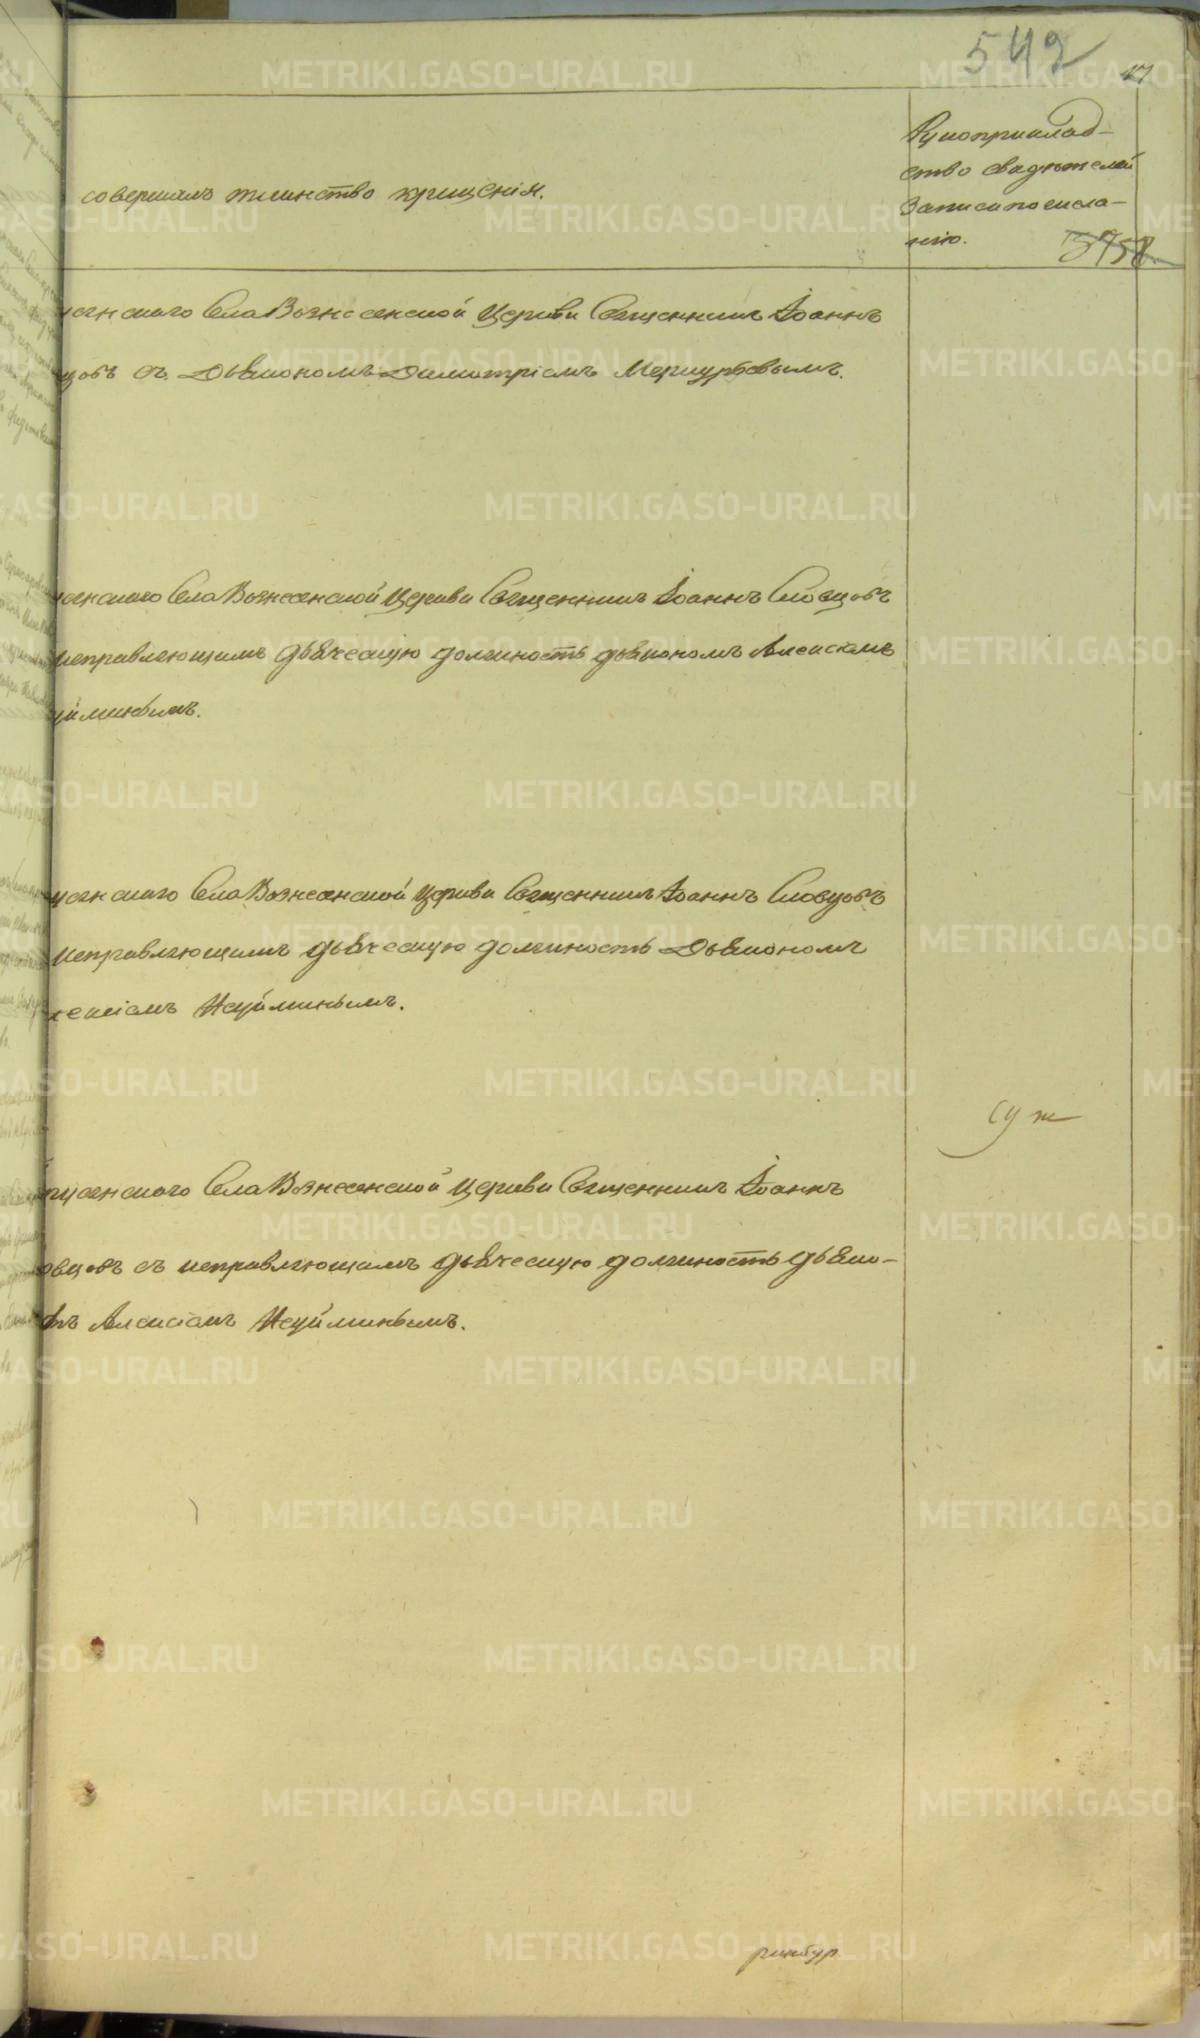 542
17
совершалъ таинство крещенія.
Рукоприклад-
ство свидѣтелей
записи по жела-
нію.
5758.
села Вознесенской церкви Священникъ Іоаннъ
цовъ съ Дьякономъ Димитріемъ Меркурьевымъ.
села Вознесенской церкви Священникъ Іоаннъ Словцовъ
исправляющимъ дьяческую должность дьякономъ Алексіемъ
уйминымъ.
села Вознесенской церкви Священникъ Іоаннъ Словцовъ
исправляющимъ дьяческую должность Дьякономъ
лексіемъ Неуйминымъ.
села Вознесенской церкви Священникъ Іоаннъ
овцовъ съ исправляющимъ дьяческую должность дьяко-
Алексіемъ Неуйминымъ.
ринбур.
METRIKI.GASO-URAL.RU